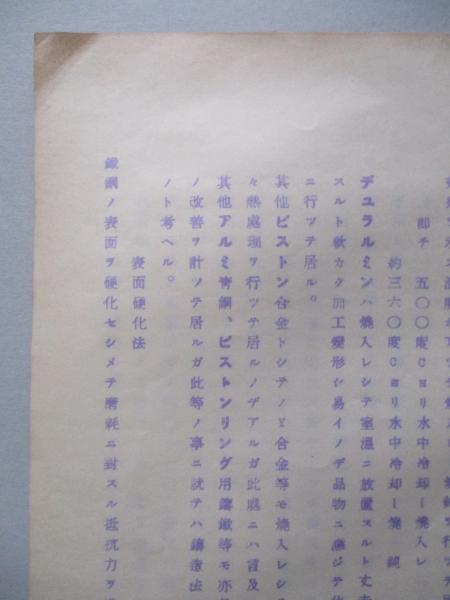 卽チ　五〇〇度Cヨリ水中冷却ー燒入レ
約三六〇度Cヨリ水中冷却ー燒　鈍
デュラルミンハ燒入レシテ室溫ニ放置スルト丈夫
スルト軟カク加工變形シ易イノデ品物ニ應ジテ
ニ行ツテ居ル。
其他ピストン合金トシテノY合金等モ燒入レシ
々熱處理ヲ行ツテ居ルノデアルガ此處ニハ言及
其他アルミ靑銅、ピストンリング用鑄鐵等モ亦
ノ改善ヲ計ツテ居ルガ此等ノ事ニ就テハ鑄造法
ノト考ヘル。
表面硬化法
鐵鋼ノ表面ヲ硬化セシメテ磨耗ニ對スル抵抗力ヲ